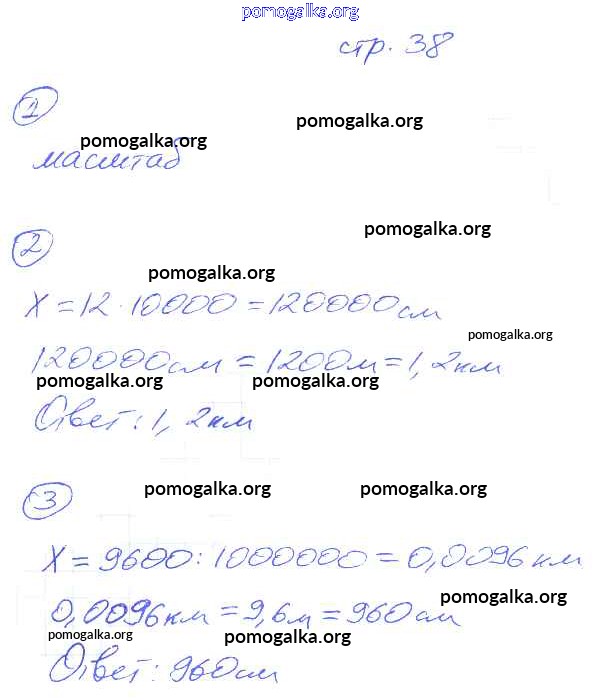 pomogalka.org
стр. 38
1
pomogalka.org
pomogalka.org
масштаб
pomogalka.org
2
pomogalka.org
X = 12 · 10000 = 120000 см
pomogalka.org
120000 см = 1200 м = 1,2 км
pomogalka.org pomogalka.org
Ответ: 1,2 км
pomogalka.org pomogalka.org
3
X = 9600 : 1000000 = 0,0096 км
pomogalka.org
0,0096 км = 9,6 м = 960 см
pomogalka.org pomogalka.org
Ответ: 960 см